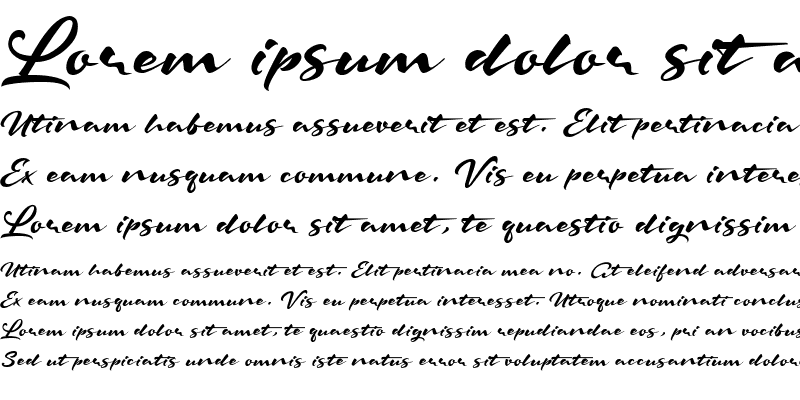 Lorem ipsum dolor sit a
Utinam habemus assueverit et est. Elit pertinacia
Ex eam nusquam commune. Vis eu perpetua intere
Lorem ipsum dolor sit amet, te quaestio dignissim
Utinam habemus assueverit et est. Elit pertinacia mea no. At eleifend adversar
Ex eam nusquam commune. Vis eu perpetua interesset. Utroque nominati conclus
Lorem ipsum dolor sit amet, te quaestio dignissim repudiandae eos, pri an vocibus
Sed ut perspiciatis unde omnis iste natus error sit voluptatem accusantium dolor